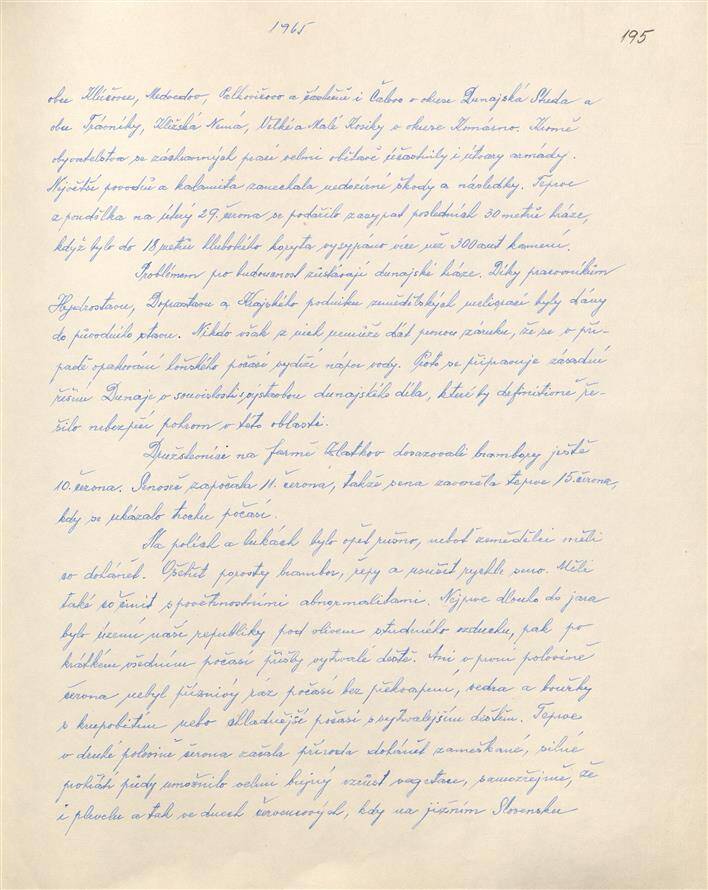 1965
195
obce Kližovce, Medvedov, Palkovičovo a částečně i Čabov v okrese Dunajská Streda a
obce Trávníky, Kližská Nemá, Velké a Malé Kosiky v okrese Komárno. Kromě
obyvatelstva se záchranných prací velmi obětavě účastnily i útvary armády.
Největší povodň a kalamita zanechala nedozírné škody a následky. Teprve
z pondělka na úterý 29. června se podařilo zasypat posledních 30 metrů hráze,
když bylo do 18 metrů hlubokého koryta vysypano více než 300 aut kamení.
Problémem pro budoucnost zůstávají dunajské hráze. Díky pracovníkům
Hydrostavu, Doprastavu a Krajského podniku zemědělských meliorací byly dány
do původního stavu. Nikdo však z nich nemůže dát pevnou záruku, že se v pří-
padě opakování loňského počasí vydrží nápor vody. Proto se připravuje zásadní
řešení Dunaje v souvislosti s výstavbou dunajského díla, které by definitivně ře-
šilo nebezpečí pohrom v této oblasti.
Družstevníci na farmě Zlatkov dosazovali brambory ještě
10. června. Senoseč započala 11. června, takže sena zavoněla teprve 15. června,
kdy se ukázalo trochu počasí.
Na polích a lukách bylo opět rušno, neboť zemědělci měli
co dohánět. Ošetřit porosty brambor, řepy a usušit rychle seno. Měli
také co činit s povětrnostními abnormalitami. Nejprve dlouho do jara
bylo území naší republiky pod vlivem studného vzduchu, pak po
krátkém všedním počasí přišly vytrvalé deště. Ani v první polovině
června nebyl příznivý ráz počasí bez překvapení, vedra a bouřky
s krupobitím nebo chladnější počasí s vytrvalejším deštěm. Teprve
v druhé polovině června začala příroda dohánět zameškané, silné
prohřátí půdy umožnilo velmi bujný vzrůst vegetace, samozřejmě, že
i plevelu a tak ve dnech červencových, kdy na jižním Slovensku